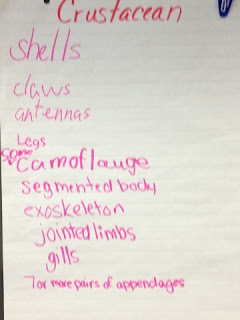 Crustacean
shells
claws
antennas
Legs
some camoflauge
segmented body
exoskeleton
jointed limbs
gills
7 or more pairs of appendages